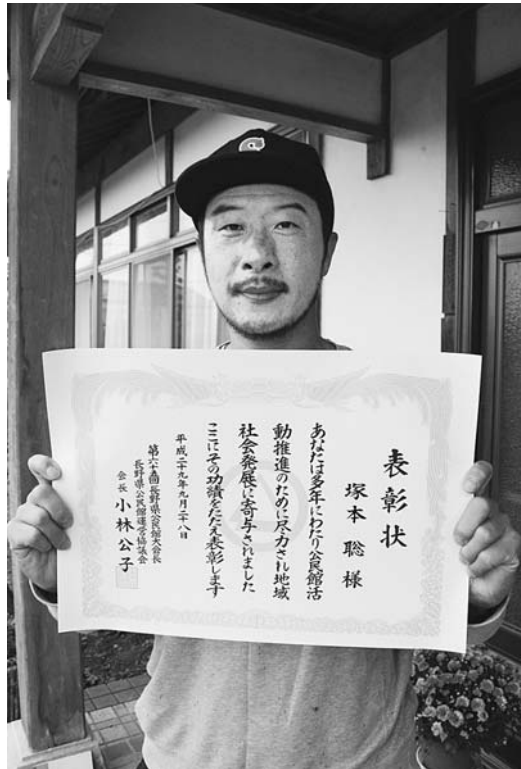 表彰状
塚本 聡 様
あなたは多年にわたり公民館活
動推進のために尽力され地域
社会発展に寄与されました
ここにその功績をたたえ表彰します
平成二十九年九月二十八日
第六十五回長野県公民館大会長
長野県公民館運営協議会
会長 小林公子